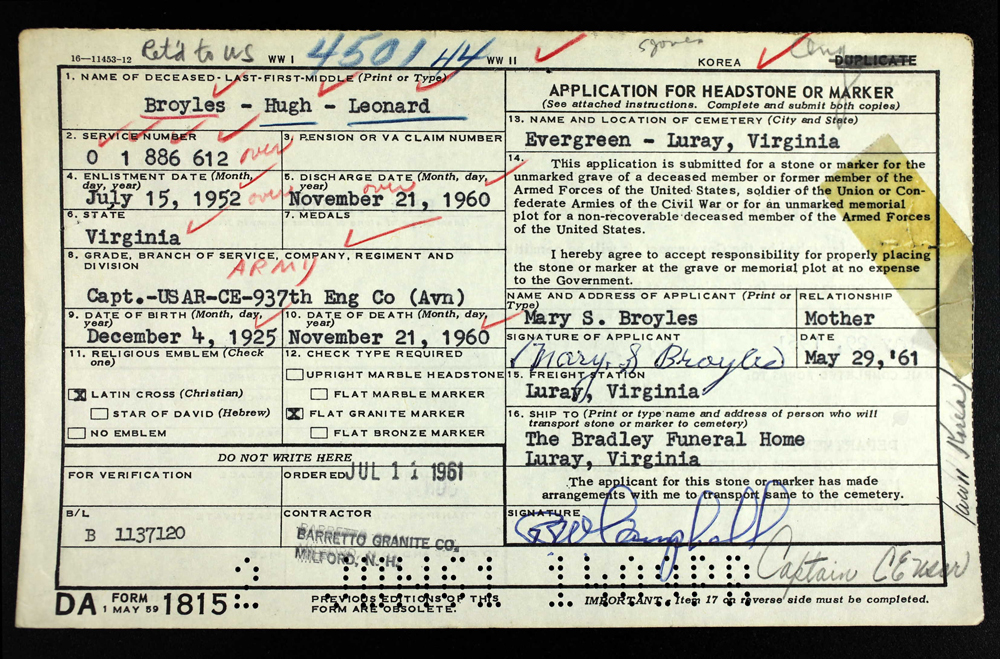 Ret'd to US 4501 44
16—11453-12 WW I WW II KOREA DUPLICATE
1. NAME OF DECEASED - LAST-FIRST-MIDDLE (Print or Type)
Broyles - Hugh - Leonard
2. SERVICE NUMBER
0 1 886 612 over
3. PENSION OR VA CLAIM NUMBER
4. ENLISTMENT DATE (Month, day, year)
July 15, 1952 over
5. DISCHARGE DATE (Month, day, year)
over
November 21, 1960
6. STATE
Virginia
7. MEDALS
8. GRADE, BRANCH OF SERVICE, COMPANY, REGIMENT AND
DIVISION
ARMY
Capt.-USAR-CE-937th Eng Co (Avn)
9. DATE OF BIRTH (Month, day, year)
December 4, 1925
10. DATE OF DEATH (Month, day, year)
November 21, 1960
11. RELIGIOUS EMBLEM (Check one)
X LATIN CROSS (Christian)
STAR OF DAVID (Hebrew)
NO EMBLEM
12. CHECK TYPE REQUIRED
UPRIGHT MARBLE HEADSTONE
FLAT MARBLE MARKER
X FLAT GRANITE MARKER
FLAT BRONZE MARKER
DO NOT WRITE HERE
FOR VERIFICATION
ORDERED JUL 11 1961
B/L
B 1137120
CONTRACTOR
BARRETTO GRANITE CO.
MILFORD, N. H.
DA FORM 1 MAY 59 1815
PREVIOUS EDITIONS OF THIS
FORM ARE OBSOLETE.
APPLICATION FOR HEADSTONE OR MARKER
(See attached instructions. Complete and submit both copies)
13. NAME AND LOCATION OF CEMETERY (City and State)
Evergreen - Luray, Virginia
14. This application is submitted for a stone or marker for the
unmarked grave of a deceased member or former member of the
Armed Forces of the United States, soldier of the Union or Con-
federate Armies of the Civil War or for an unmarked memorial
plot for a non-recoverable deceased member of the Armed Forces
of the United States.
I hereby agree to accept responsibility for properly placing
the stone or marker at the grave or memorial plot at no expense
to the Government.
NAME AND ADDRESS OF APPLICANT (Print or Type)
Mary S. Broyles
RELATIONSHIP
Mother
SIGNATURE OF APPLICANT
Mary S Broyles
DATE
May 29,'61
15. FREIGHT STATION
Luray, Virginia
16. SHIP TO (Print or type name and address of person who will
transport stone or marker to cemetery)
The Bradley Funeral Home
Luray, Virginia
The applicant for this stone or marker has made
arrangements with me to transport same to the cemetery.
SIGNATURE
Campbell
Captain CE USAR
IMPORTANT, Item 17 on reverse side must be completed.
Korea